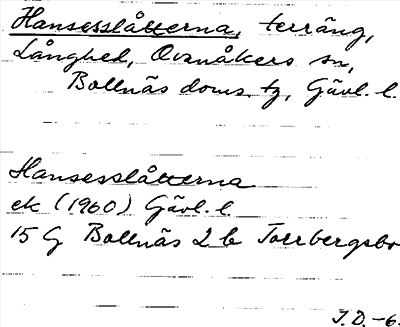 Hansesslåtterna, terräng,
Långhed, Ovanåkers sn,
Bollnäs doms. tg, Gävl. l.
Hansesslåtterna
ek (1960) Gävl. l.
15 G Bollnäs 2 b Torrbergsbo
J.D.-6.